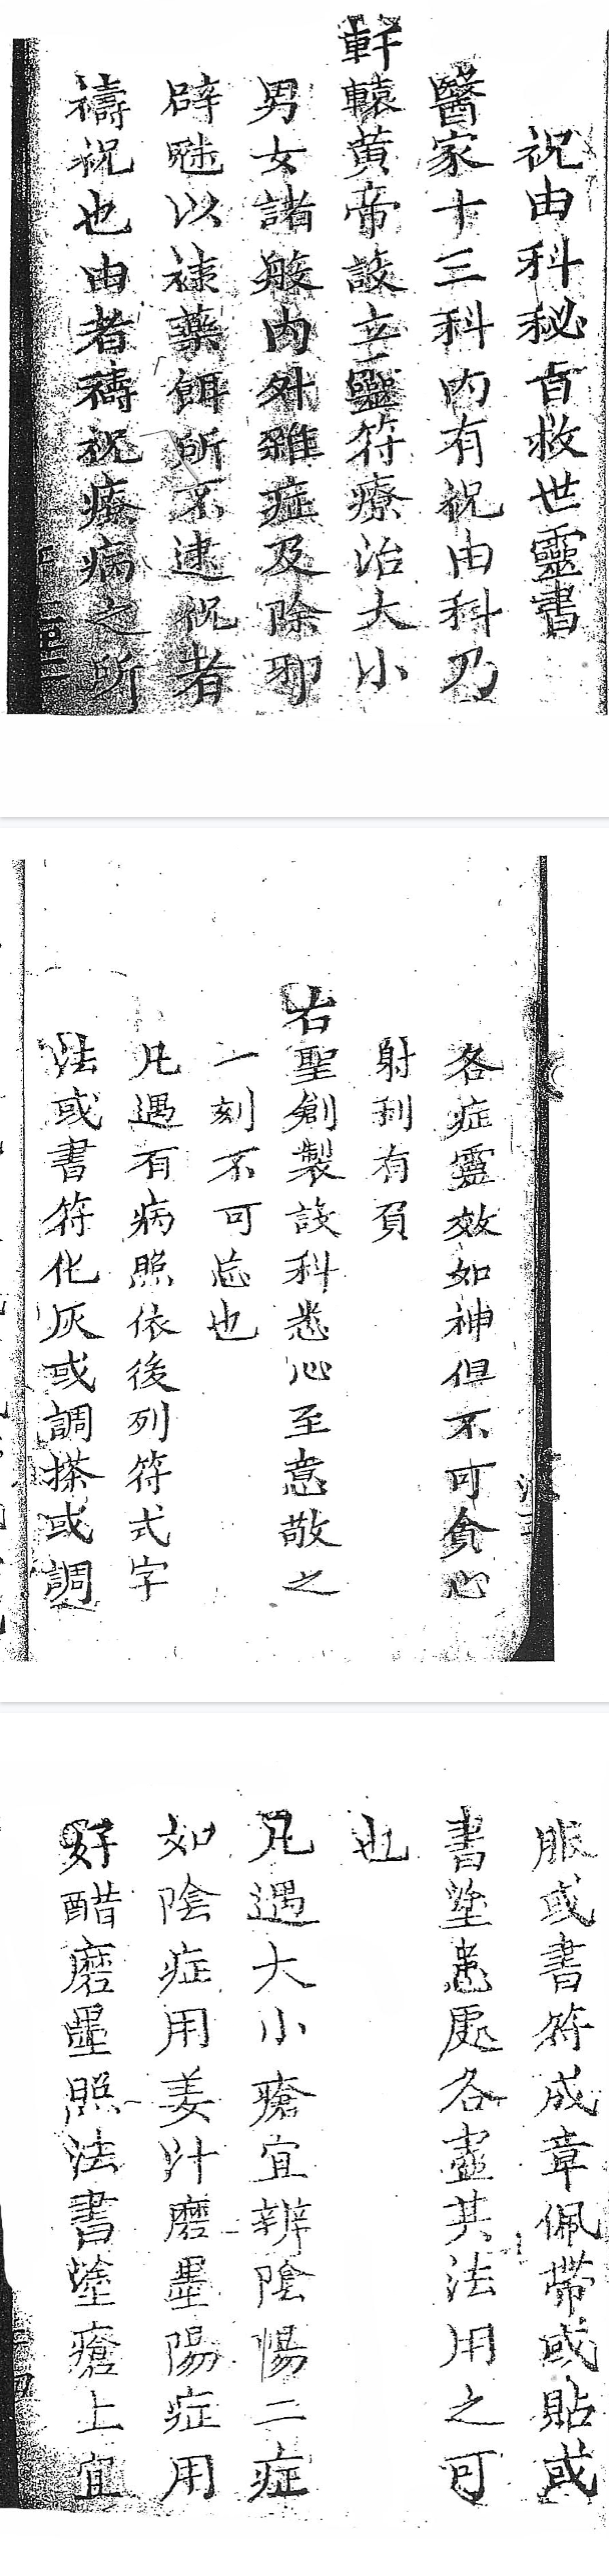 祝由科秘旨救世靈書
醫家十三科內有祝由科乃
軒轅黃帝設立靈符療治大小
男女諸般內外雜症及除邪
辟魅以祿藥餌所不逮祝者
禱祝也由者禱祝療病之所
各症靈效如神但不可貪心
射利有負
右聖創製設科悉心至意敬之
一刻不可忘也
凡遇有病照依後列符式字
法或書符化灰或調搽或調
服或書符成章佩帶或貼或
書塗患處各盡其法用之可
也
凡遇大小瘡宜辨陰陽二症
如陰症用姜汁磨墨陽症用
好醋磨墨照法書塗瘡上宜